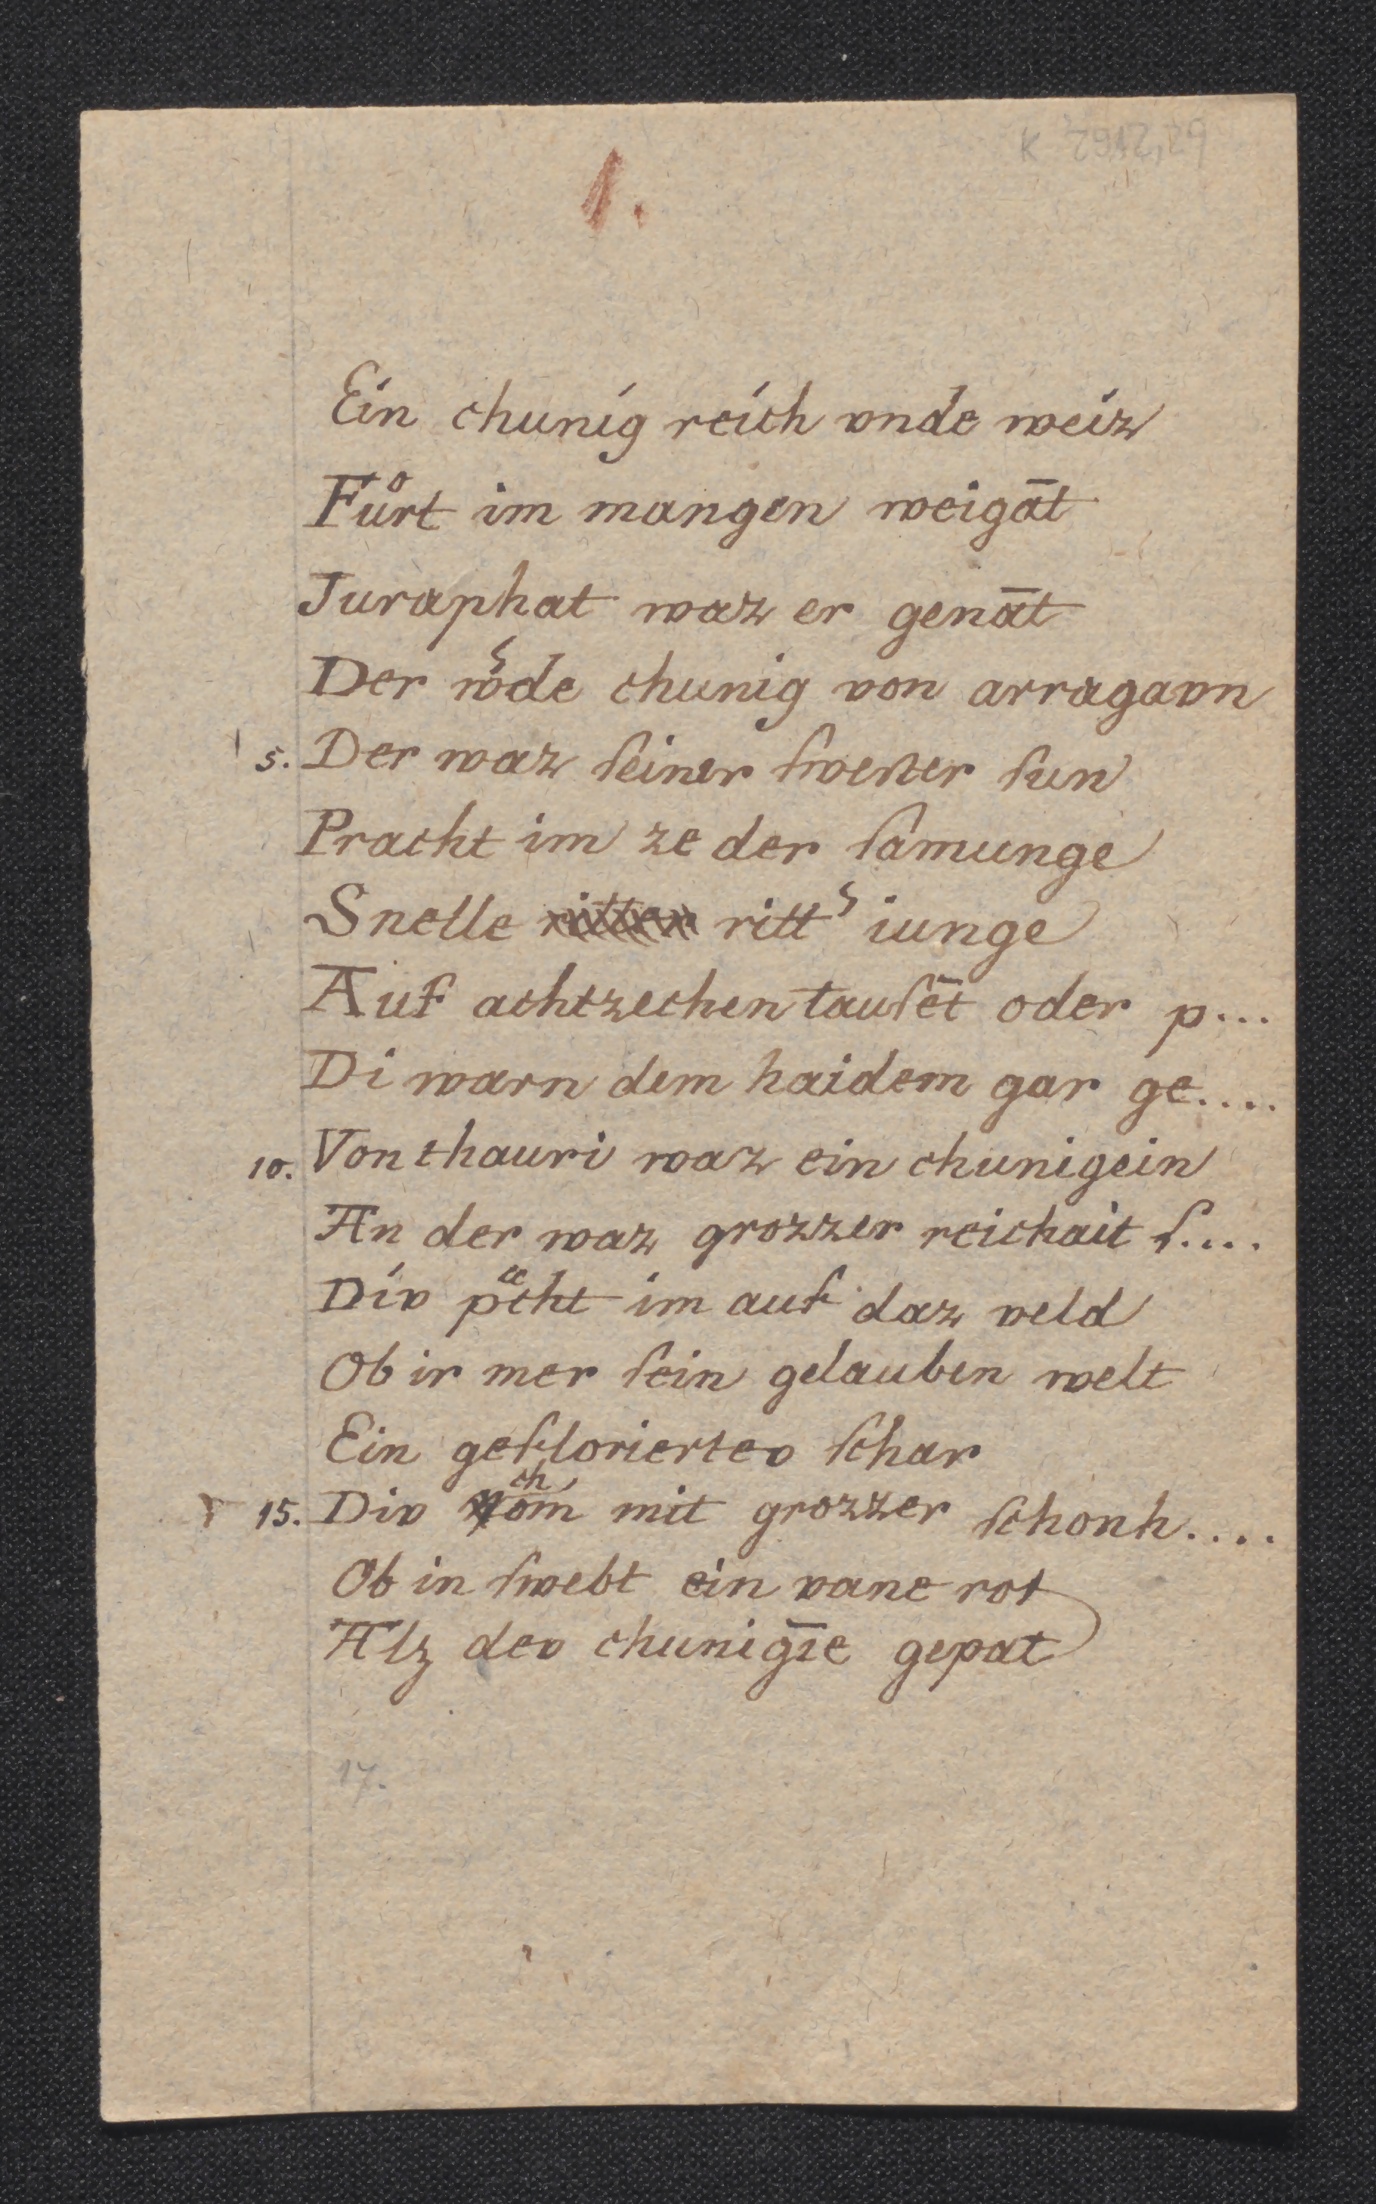 K 2912,29
1.
Ein chunig reich vnde weiz
Fůrt im mangen weigāt
Juraphat waz er genāt
Der w͛de chunig von arragavn
5. Der waz ſeiner ſweſter ſun
Pracht im ze der ſamunge
Snelle ritt͛ iunge
Auf achtzechen tauſēt oder p...
Di warn dem haidem gar ge....
10. Von thauri waz ein chunigein
An der waz grozzer reichait ſ....
Div pͣcht im auf daz veld
Ob ir mer ſein gelauben welt
Ein gefloriertev ſchar
15. Div chom mit grozzer ſchonh....
Ob in ſwebt ein vane rot
Alz dev chunigīe gepat
17.